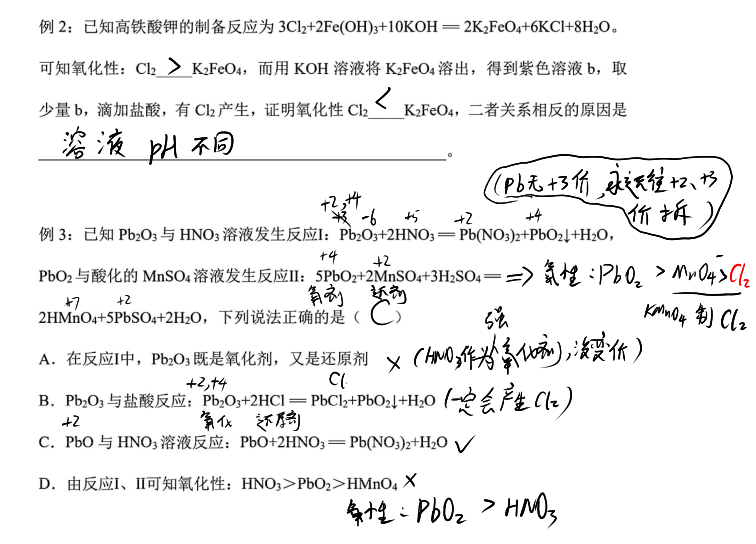 例 2：已知高铁酸钾的制备反应为 3Cl₂+2Fe(OH)₃+10KOH＝2K₂FeO₄+6KCl+8H₂O。
可知氧化性：Cl₂ > K₂FeO₄，而用 KOH 溶液将 K₂FeO₄ 溶出，得到紫色溶液 b，取
少量 b，滴加盐酸，有 Cl₂ 产生，证明氧化性 Cl₂ < K₂FeO₄，二者关系相反的原因是
溶液 pH 不同。
(Pb无+3价，永远往+2、+3
价拆)
+2,+4 -6 +5 +2 +4
例 3：已知 Pb₂O₃ 与 HNO₃ 溶液发生反应I：Pb₂O₃+2HNO₃＝Pb(NO₃)₂+PbO₂↓+H₂O，
+4 +2
PbO₂ 与酸化的 MnSO₄ 溶液发生反应II：5PbO₂+2MnSO₄+3H₂SO₄＝=> 氧性：PbO₂ > MnO₄⁻>Cl₂
氧剂 还剂
KMnO₄ 制 Cl₂
+7 +2
2HMnO₄+5PbSO₄+2H₂O，下列说法正确的是（ C ）
强
A．在反应I中，Pb₂O₃ 既是氧化剂，又是还原剂 × (HNO₃作为氧化剂)，没变价)
+2,+4 Cl
B．Pb₂O₃ 与盐酸反应：Pb₂O₃+2HCl＝PbCl₂+PbO₂↓+H₂O (一定会产生Cl₂)
+2 氧化 还原剂
C．PbO 与 HNO₃ 溶液反应：PbO+2HNO₃＝Pb(NO₃)₂+H₂O ✓
D．由反应I、II可知氧化性：HNO₃＞PbO₂＞HMnO₄ ×
氧性：PbO₂ > HNO₃